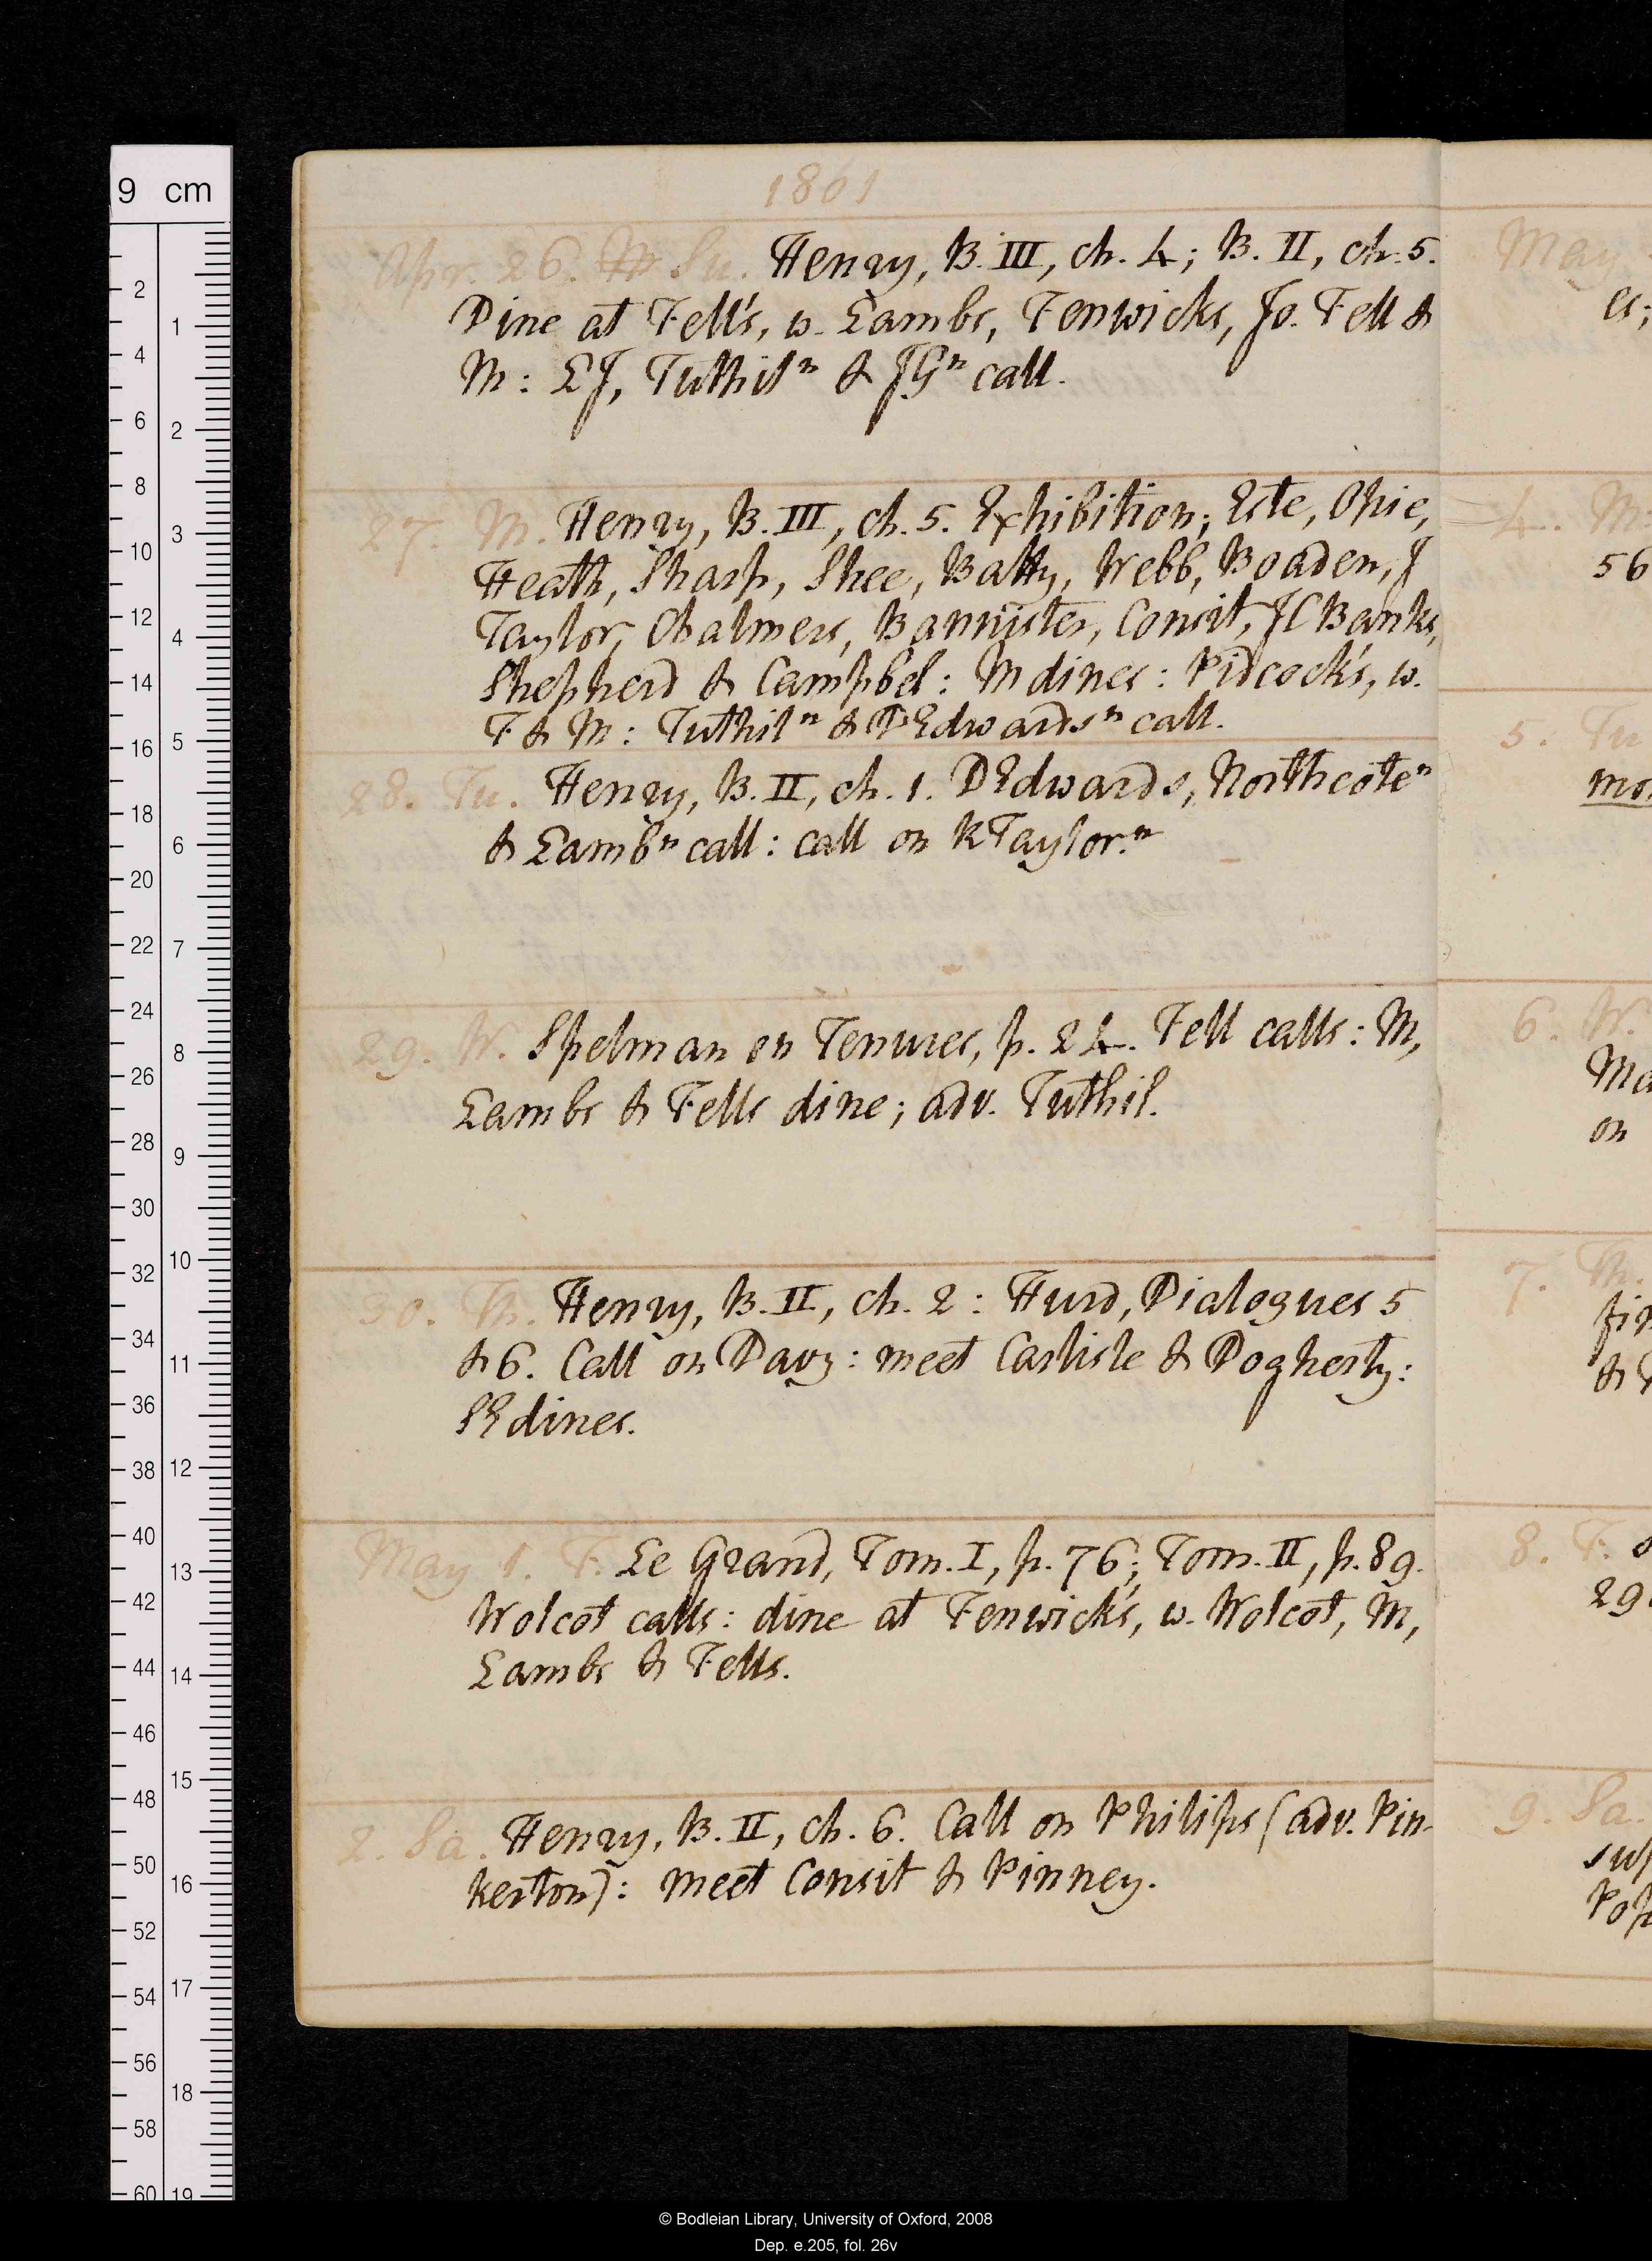 1801
Apr. 26. Su. Henry, B. III, ch. 4; B. II, ch. 5.
Dine at Fell's, w. Lambs, Fenwicks, Jo. Fell &
M: LJ, Tuthil n & JG n call.
27. M. Henry, B. III, ch. 5. Exhibition; Este, Opie,
Heath, Sharp, Shee, Batty, Webb, Boaden, J
Taylor, Chalmers, Bannister, Consit, JC Banks,
Shepherd & Campbel: M dines: Pidcock's, w.
F & M: Tuthil n & DEdwards n call.
28. Tu. Henry, B. II, ch. 1. DEdwards, Northcote n
& Lamb n call: call on KTaylor. n
29. W. Spelman on Tenures, p. 24. Fell calls: M,
Lambs & Fells dine; adv. Tuthil.
30. Th. Henry, B. II, ch. 2: Hurd, Dialogues 5
& 6. Call on Davy: meet Carlisle & Dogherty:
SE dines.
May 1. F. Le Grand, Tom. I, p. 76; Tom. II, p. 89.
Wolcot calls: dine at Fenwick's, w. Wolcot, M,
Lambs & Fells.
2. Sa. Henry, B. II, ch. 6. Call on Philips (adv. Pin-
kerton): meet Consit & Pinney.
May
es;
4. M.
56
5. Tu
6. W.
Ma
on
7. Th.
&
8. F.
29
9. Sa.
Pop
9 cm
2
4
6
8
10
12
14
16
18
20
22
24
26
28
30
32
34
36
38
40
42
44
46
48
50
52
54
56
58
60
1
2
3
4
5
6
7
8
9
10
11
12
13
14
15
16
17
18
19
© Bodleian Library, University of Oxford, 2008
Dep. e.205, fol. 26v